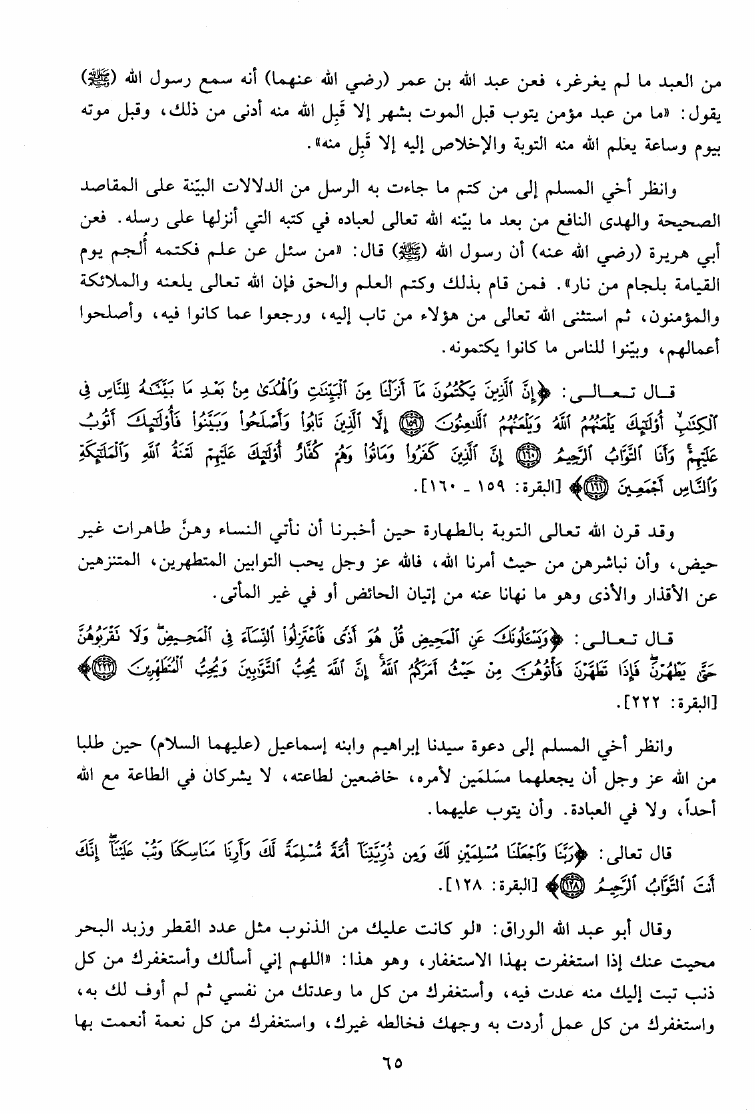 من العبد ما لم يغرغر، فعن عبد الله بن عمر (رضي الله عنهما) أنه سمع رسول الله (ﷺ)
يقول: «ما من عبد مؤمن يتوب قبل الموت بشهر إلا قَبِل الله منه أدنى من ذلك، وقبل موته
بيوم وساعة يعلم الله منه التوبة والإخلاص إليه إلا قَبِل منه».
وانظر أخي المسلم إلى من كتم ما جاءت به الرسل من الدلالات البيّنة على المقاصد
الصحيحة والهدى النافع من بعد ما بيّنه الله تعالى لعباده في كتبه التي أنزلها على رسله. فعن
أبي هريرة (رضي الله عنه) أن رسول الله (ﷺ) قال: «من سئل عن علم فكتمه أُلجم يوم
القيامة بلجام من نار». فمن قام بذلك وكتم العلم والحق فإن الله تعالى يلعنه والملائكة
والمؤمنون، ثم استثنى الله تعالى من هؤلاء من تاب إليه، ورجعوا عما كانوا فيه، وأصلحوا
أعمالهم، وبيّنوا للناس ما كانوا يكتمونه.
قال تعالى: ﴿إِنَّ ٱلَّذِينَ يَكْتُمُونَ مَآ أَنزَلْنَا مِنَ ٱلْبَيِّنَٰتِ وَٱلْهُدَىٰ مِنۢ بَعْدِ مَا بَيَّنَّٰهُ لِلنَّاسِ فِى
ٱلْكِتَٰبِ أُو۟لَٰٓئِكَ يَلْعَنُهُمُ ٱللَّهُ وَيَلْعَنُهُمُ ٱللَّٰعِنُونَ ١٥٩ إِلَّا ٱلَّذِينَ تَابُوا۟ وَأَصْلَحُوا۟ وَبَيَّنُوا۟ فَأُو۟لَٰٓئِكَ أَتُوبُ
عَلَيْهِمْ وَأَنَا ٱلتَّوَّابُ ٱلرَّحِيمُ ١٦٠ إِنَّ ٱلَّذِينَ كَفَرُوا۟ وَمَاتُوا۟ وَهُمْ كُفَّارٌ أُو۟لَٰٓئِكَ عَلَيْهِمْ لَعْنَةُ ٱللَّهِ وَٱلْمَلَٰٓئِكَةِ
وَٱلنَّاسِ أَجْمَعِينَ ١٦١﴾ [البقرة: ١٥٩ - ١٦٠].
وقد قرن الله تعالى التوبة بالطهارة حين أخبرنا أن نأتي النساء وهنَّ طاهرات غير
حيض، وأن نباشرهن من حيث أمرنا الله، فالله عز وجل يحب التوابين المتطهرين، المتنزهين
عن الأقذار والأذى وهو ما نهانا عنه من إتيان الحائض أو في غير المأتى.
قال تعالى: ﴿وَيَسْـَٔلُونَكَ عَنِ ٱلْمَحِيضِ قُلْ هُوَ أَذًى فَٱعْتَزِلُوا۟ ٱلنِّسَآءَ فِى ٱلْمَحِيضِ وَلَا تَقْرَبُوهُنَّ
حَتَّىٰ يَطْهُرْنَ فَإِذَا تَطَهَّرْنَ فَأْتُوهُنَّ مِنْ حَيْثُ أَمَرَكُمُ ٱللَّهُ إِنَّ ٱللَّهَ يُحِبُّ ٱلتَّوَّٰبِينَ وَيُحِبُّ ٱلْمُتَطَهِّرِينَ ٢٢٢﴾
[البقرة: ٢٢٢].
وانظر أخي المسلم إلى دعوة سيدنا إبراهيم وابنه إسماعيل (عليهما السلام) حين طلبا
من الله عز وجل أن يجعلهما مسَلمَين لأمره، خاضعين لطاعته، لا يشركان في الطاعة مع الله
أحداً، ولا في العبادة. وأن يتوب عليهما.
قال تعالى: ﴿رَبَّنَا وَٱجْعَلْنَا مُسْلِمَيْنِ لَكَ وَمِن ذُرِّيَّتِنَآ أُمَّةً مُّسْلِمَةً لَّكَ وَأَرِنَا مَنَاسِكَنَا وَتُبْ عَلَيْنَآ إِنَّكَ
أَنتَ ٱلتَّوَّابُ ٱلرَّحِيمُ ١٢٨﴾ [البقرة: ١٢٨].
وقال أبو عبد الله الوراق: «لو كانت عليك من الذنوب مثل عدد القطر وزبد البحر
محيت عنك إذا استغفرت بهذا الاستغفار، وهو هذا: «اللهم إني أسألك وأستغفرك من كل
ذنب تبت إليك منه عدت فيه، وأستغفرك من كل ما وعدتك من نفسي ثم لم أوف لك به،
واستغفرك من كل عمل أردت به وجهك فخالطه غيرك، واستغفرك من كل نعمة أنعمت بها
٦٥